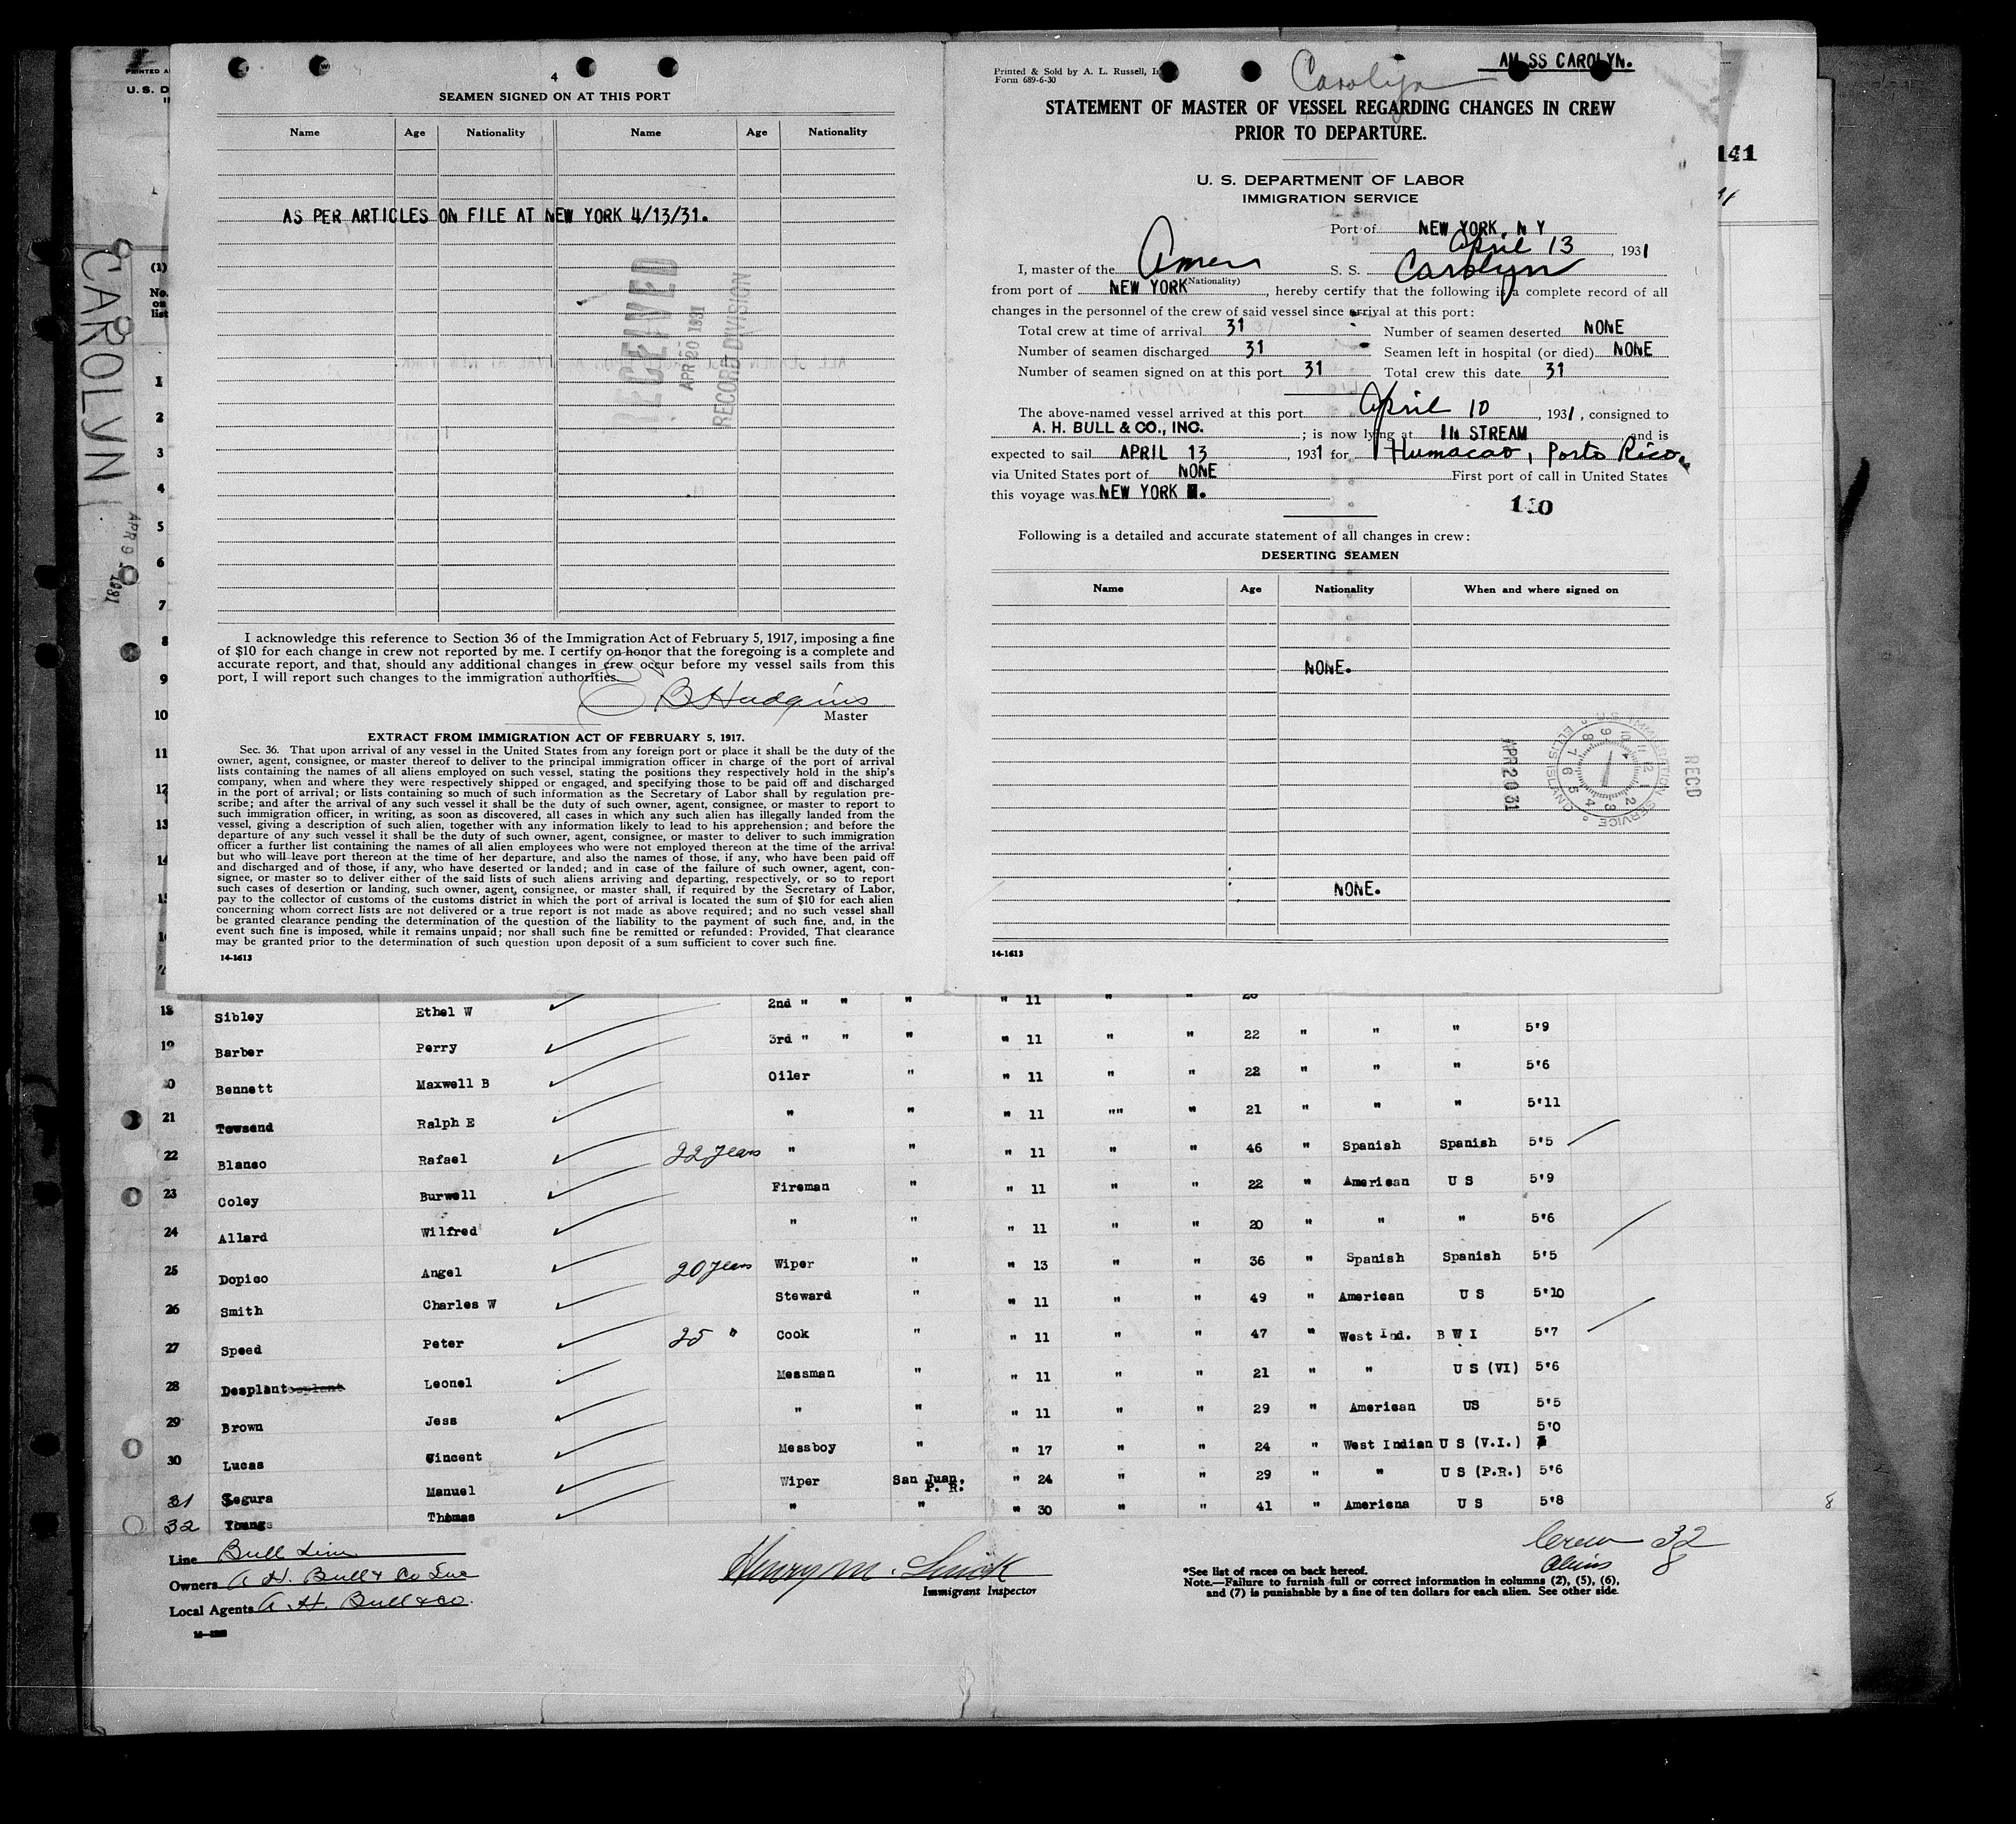 4
SEAMEN SIGNED ON AT THIS PORT
Name Age Nationality Name Age Nationality
AS PER ARTICLES ON FILE AT NEW YORK 4/13/31.
RECEIVED
APR 20 1931
RECORD DIVISION
I acknowledge this reference to Section 36 of the Immigration Act of February 5, 1917, imposing a fine
of $10 for each change in crew not reported by me. I certify on honor that the foregoing is a complete and
accurate report, and that, should any additional changes in crew occur before my vessel sails from this
port, I will report such changes to the immigration authorities.
B Hudgins
Master
EXTRACT FROM IMMIGRATION ACT OF FEBRUARY 5, 1917.
Sec. 36. That upon arrival of any vessel in the United States from any foreign port or place it shall be the duty of the
owner, agent, consignee, or master thereof to deliver to the principal immigration officer in charge of the port of arrival
lists containing the names of all aliens employed on such vessel, stating the positions they respectively hold in the ship's
company, when and where they were respectively shipped or engaged, and specifying those to be paid off and discharged
in the port of arrival; or lists containing so much of such information as the Secretary of Labor shall by regulation pre-
scribe; and after the arrival of any such vessel it shall be the duty of such owner, agent, consignee, or master to report to
such immigration officer, in writing, as soon as discovered, all cases in which any such alien has illegally landed from the
vessel, giving a description of such alien, together with any information likely to lead to his apprehension; and before the
departure of any such vessel it shall be the duty of such owner, agent, consignee, or master to deliver to such immigration
officer a further list containing the names of all alien employees who were not employed thereon at the time of the arrival
but who will leave port thereon at the time of her departure, and also the names of those, if any, who have been paid off
and discharged and of those, if any, who have deserted or landed; and in case of the failure of such owner, agent, con-
signee, or master so to deliver either of the said lists of such aliens arriving and departing, respectively, or so to report
such cases of desertion or landing, such owner, agent, consignee, or master shall, if required by the Secretary of Labor,
pay to the collector of customs of the customs district in which the port of arrival is located the sum of $10 for each alien
concerning whom correct lists are not delivered or a true report is not made as above required; and no such vessel shall
be granted clearance pending the determination of the question of the liability to the payment of such fine, and, in the
event such fine is imposed, while it remains unpaid; nor shall such fine be remitted or refunded: Provided, That clearance
may be granted prior to the determination of such question upon deposit of a sum sufficient to cover such fine.
14-1613
Printed & Sold by A. L. Russell,
Form 689-6-30
Carolyn
AM SS CAROLYN.
STATEMENT OF MASTER OF VESSEL REGARDING CHANGES IN CREW
PRIOR TO DEPARTURE.
U. S. DEPARTMENT OF LABOR
IMMIGRATION SERVICE
Port of NEW YORK, N Y
April 13, 1931
I, master of the Amer S. S. Carolyn
(Nationality)
from port of NEW YORK, hereby certify that the following is a complete record of all
changes in the personnel of the crew of said vessel since arrival at this port:
Total crew at time of arrival 31 Number of seamen deserted NONE
Number of seamen discharged 31 Seamen left in hospital (or died) NONE
Number of seamen signed on at this port 31 Total crew this date 31
The above-named vessel arrived at this port April 10, 1931, consigned to
A. H. BULL & CO., INC.; is now lying at IN STREAM and is
expected to sail APRIL 13, 1931 for Humacao, Porto Rico
via United States port of NONE First port of call in United States
this voyage was NEW YORK.
Following is a detailed and accurate statement of all changes in crew:
DESERTING SEAMEN
Name Age Nationality When and where signed on
NONE.
NONE.
APR 20 31
IMMIGRATION SERVICE
ELLIS ISLAND
RECD
14-1613
141
CAROLYN
APR 9 1931
PRINTED
U. S. D
(1)
No.
on
list
1
2
3
4
5
6
7
8
9
10
11
12
13
14
18 Sibley Ethel W 2nd " " " " 11 " "
19 Barber Perry 3rd " " " " 11 " " 22 " " " 5'9
Bennett Maxwell B Oiler " " 11 " " 22 " " " 5'6
21 Towsend Ralph E " " " 11 "" " 21 " " " 5'11
22 Blanso Rafael 22 years " " " 11 " " 46 " Spanish Spanish 5'5
23 Coley Burwell Fireman " " 11 " " 22 " American U S 5'9
24 Allard Wilfred " " " 11 " " 20 " " " 5'6
25 Dopico Angel 20 years Wiper " " 13 " " 36 " Spanish Spanish 5'5
26 Smith Charles W Steward " " 11 " " 49 " American U S 5'10
27 Speed Peter 25 " Cook " " 11 " " 47 " West Ind. B W I 5'7
28 Desplant Leonel Messman " " 11 " " 21 " " U S (VI) 5'6
29 Brown Jess " " " 11 " " 29 " American US 5'5
30 Lucas Vincent Messboy " " 17 " " 24 " West Indian U S (V.I.) 5'0
31 Segura Manuel Wiper San Juan, P. R. " 24 " " 29 " " U S (P.R.) 5'6
32 Young Thomas " " " 30 " " 41 " Ameriena U S 5'8
8
Line Bull Line
Owners A H. Bull & Co Inc
Local Agents A. H. Bull & Co.
Immigrant Inspector
*See list of races on back hereof.
Note.—Failure to furnish full or correct information in columns (2), (5), (6),
and (7) is punishable by a fine of ten dollars for each alien. See other side.
Crew 32
Aliens 8